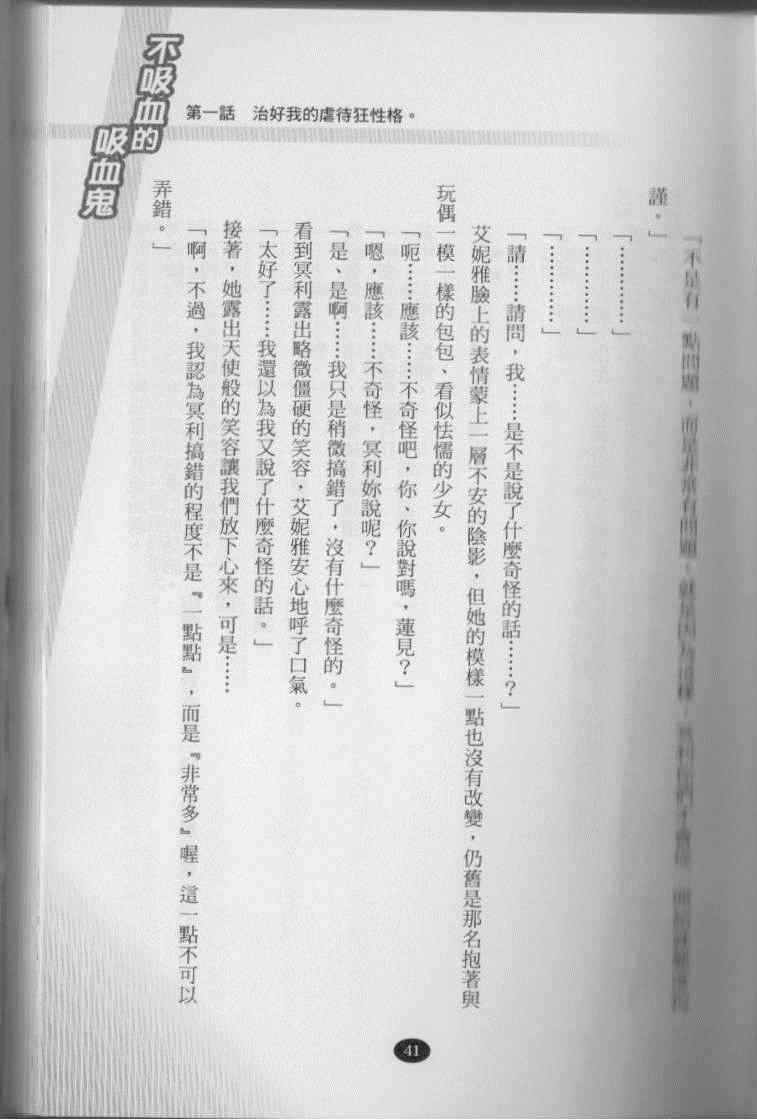 不吸血的
吸血鬼
第一話　治好我的虐待狂性格。
「不是有一點問題，而是非常有問題。
謹。」
「…………」
「…………」
「…………」
「請……請問，我……是不是說了什麼奇怪的話……？」
艾妮雅臉上的表情蒙上一層不安的陰影，但她的模樣一點也沒有改變，仍舊是那名抱著與
玩偶一模一樣的包包、看似怯懦的少女。
「呃……應該……不奇怪吧，你、你說對嗎，蓮見？」
「嗯，應該……不奇怪，冥利妳說呢？」
「是、是啊……我只是稍微搞錯了，沒有什麼奇怪的。」
看到冥利露出略微僵硬的笑容，艾妮雅安心地呼了口氣。
「太好了……我還以為我又說了什麼奇怪的話。」
接著，她露出天使般的笑容讓我們放下心來，可是……
「啊，不過，我認為冥利搞錯的程度不是『一點點』，而是『非常多』喔，這一點不可以
弄錯。」
41